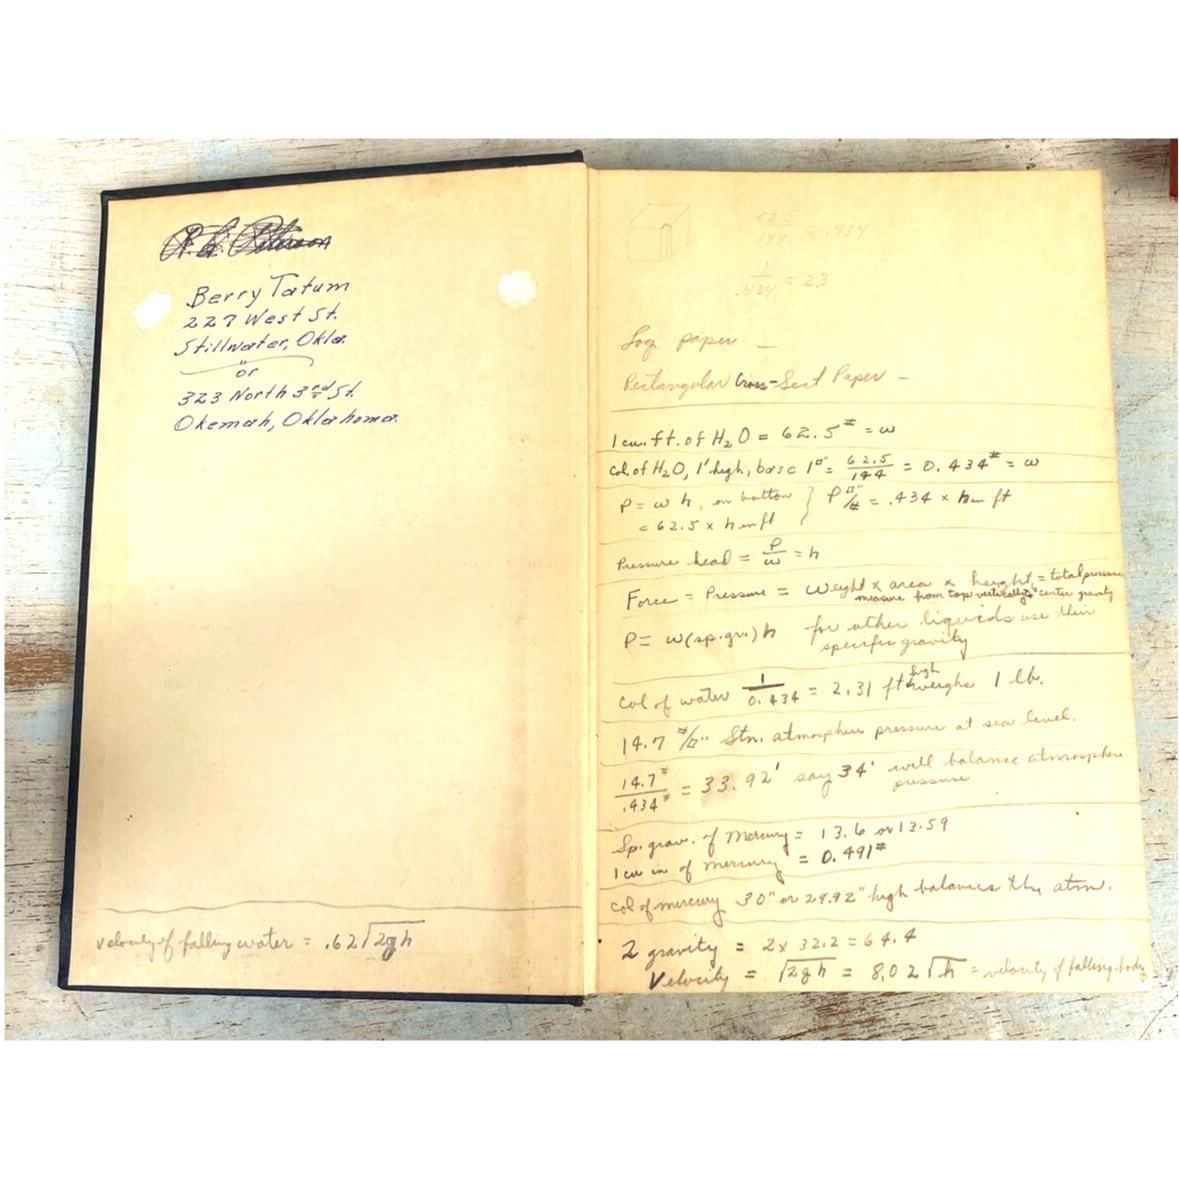 Berry Tatum
227 West St.
Stillwater, Okla.
or
323 North 3rd St.
Okemah, Oklahoma.
velocity of falling water = .62√2gh
62.5/144 = .434
1/.434 = 2.3
Log paper —
Rectangular Cross-Sect Paper —
1 cu. ft. of H2O = 62.5# = w
Col. of H2O, 1' high, base 1□" = 62.5/144 = 0.434# = w
P = w h, on bottom } P #/□" = .434 x h in ft
= 62.5 x h in ft
Pressure head = P/w = h
Force = Pressure = weight x area x height = total pressure
measure from top vertically to center gravity
P = w(sp.gr.)h for other liquids use their
specific gravity
Col of water 1/0.434 = 2.31 ft high weighs 1 lb.
14.7 #/□" Stn. atmosphere pressure at sea level.
14.7#/.434# = 33.92' say 34' will balance atmosphere
pressure
Sp. grav. of Mercury = 13.6 or 13.59
1 cu in of mercury = 0.491#
Col of mercury 30" or 29.92" high balances the atm.
2 gravity = 2 x 32.2 = 64.4
Velocity = √2gh = 8.02√h = velocity of falling body